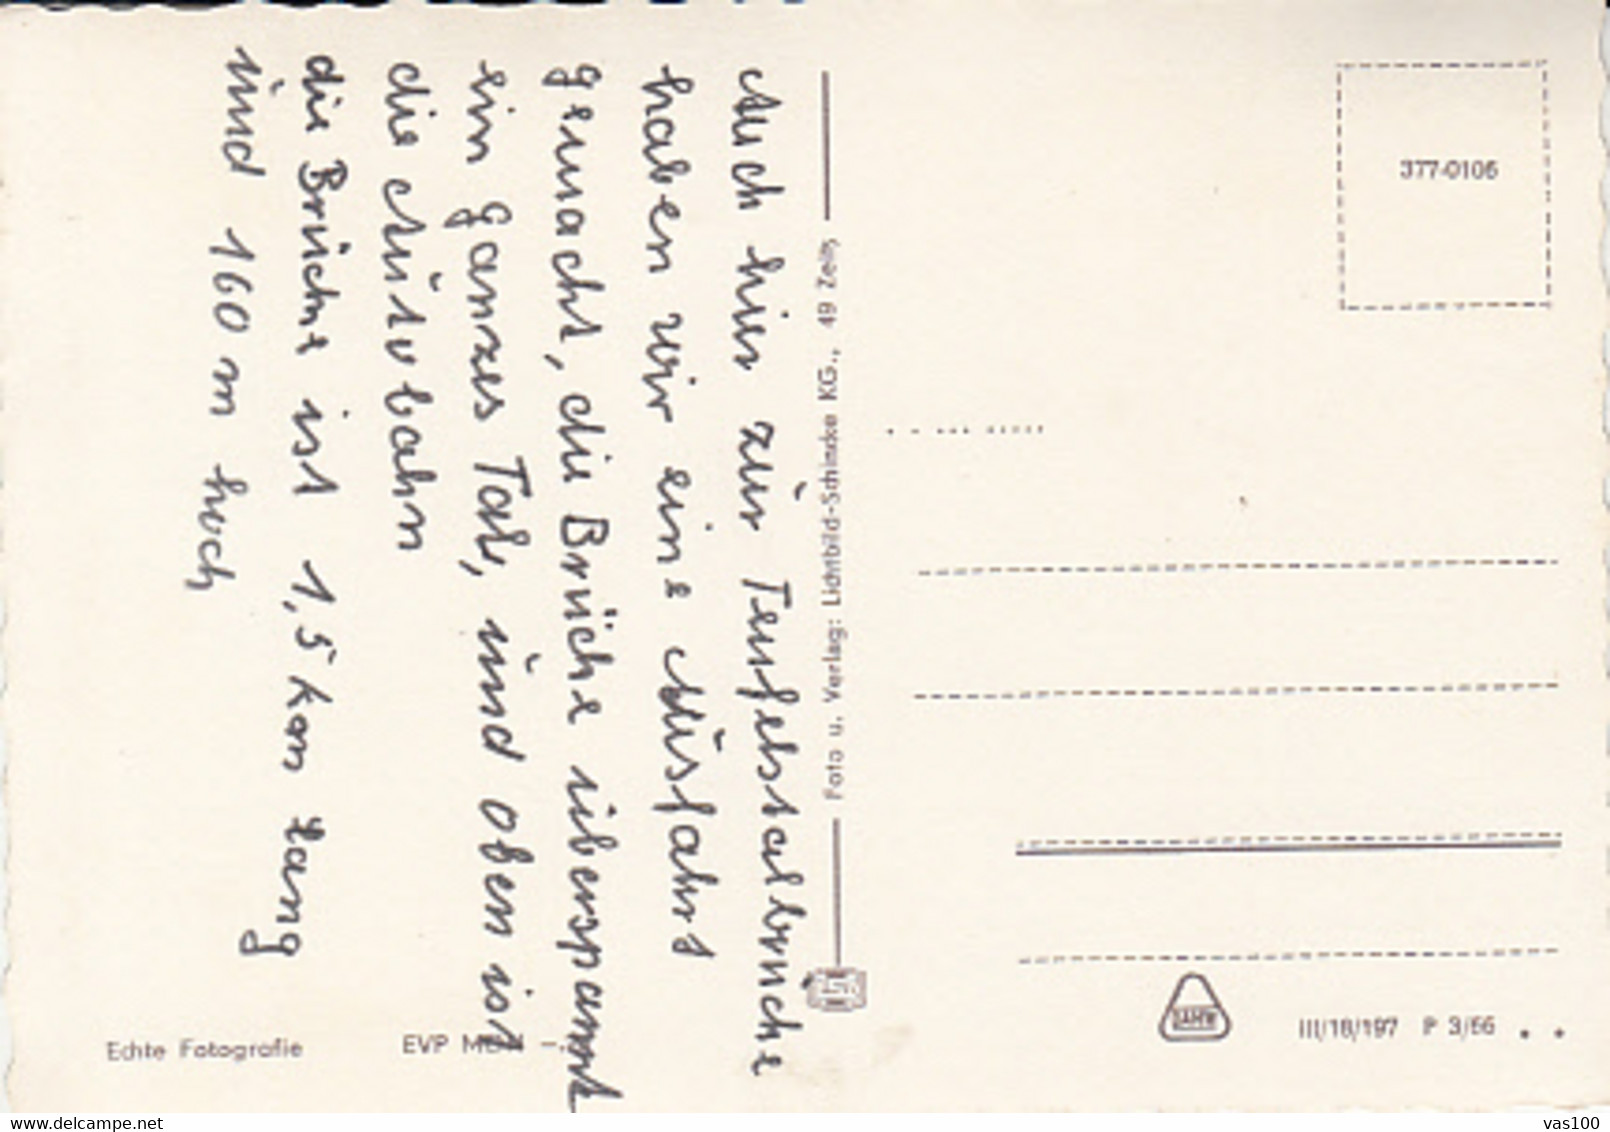 Auch hier zur Teufelstalbrücke
haben wir eine Ausfahrt
gemacht, die Brücke überspannt
ein ganzes Tal, und oben ist
die Autobahn
die Brücke ist 1,5 km lang
und 160 m hoch
Echte Fotografie
EVP MDN
Foto u. Verlag: Lichtbild-Schincke KG., 49 Zeitz
377-0106
III/18/197 P 3/66
hippostcard.com
vas100